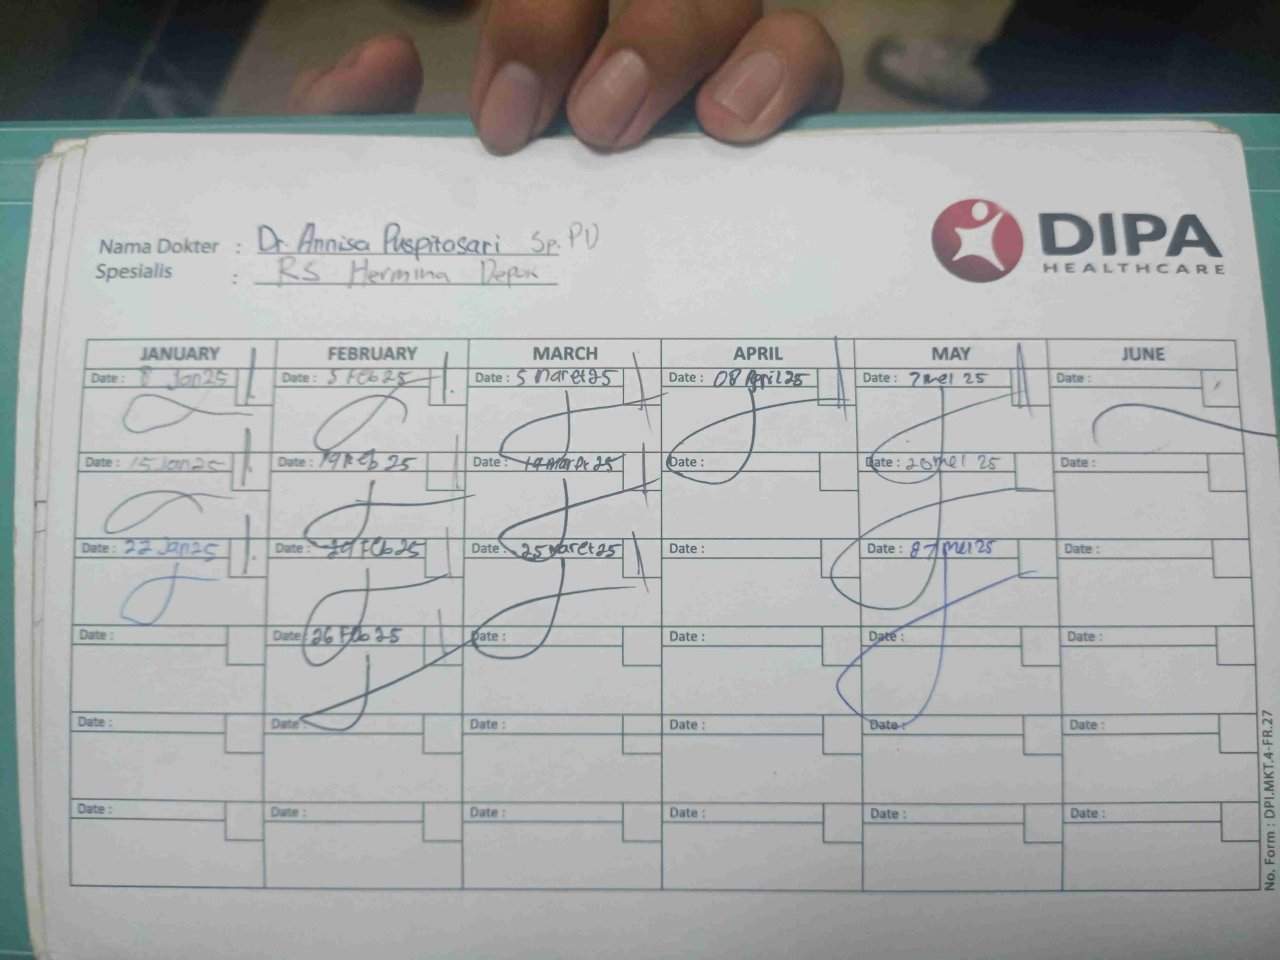 DIPA
HEALTHCARE
Nama Dokter : Dr. Annisa Puspitasari Sp.PD
Spesialis : RS Hermina Depok
JANUARY FEBRUARY MARCH APRIL MAY JUNE
Date : 8 Jan 25 Date : 5 Feb 25 Date : 5 Maret 25 Date : 08 April 25 Date : 7 mei 25 Date :
Date : 15 Jan 25 Date : 19 Feb 25 Date : 19 Maret 25 Date : Date : 20 mei 25 Date :
Date : 22 Jan 25 Date : Feb 25 Date : 25 maret 25 Date : Date : mei 25 Date :
Date : Date : 26 Feb 25 Date : Date : Date : Date :
Date : Date : Date : Date : Date : Date :
Date : Date : Date : Date : Date : Date :
No. Form : DPI.MKT.4-FR.27